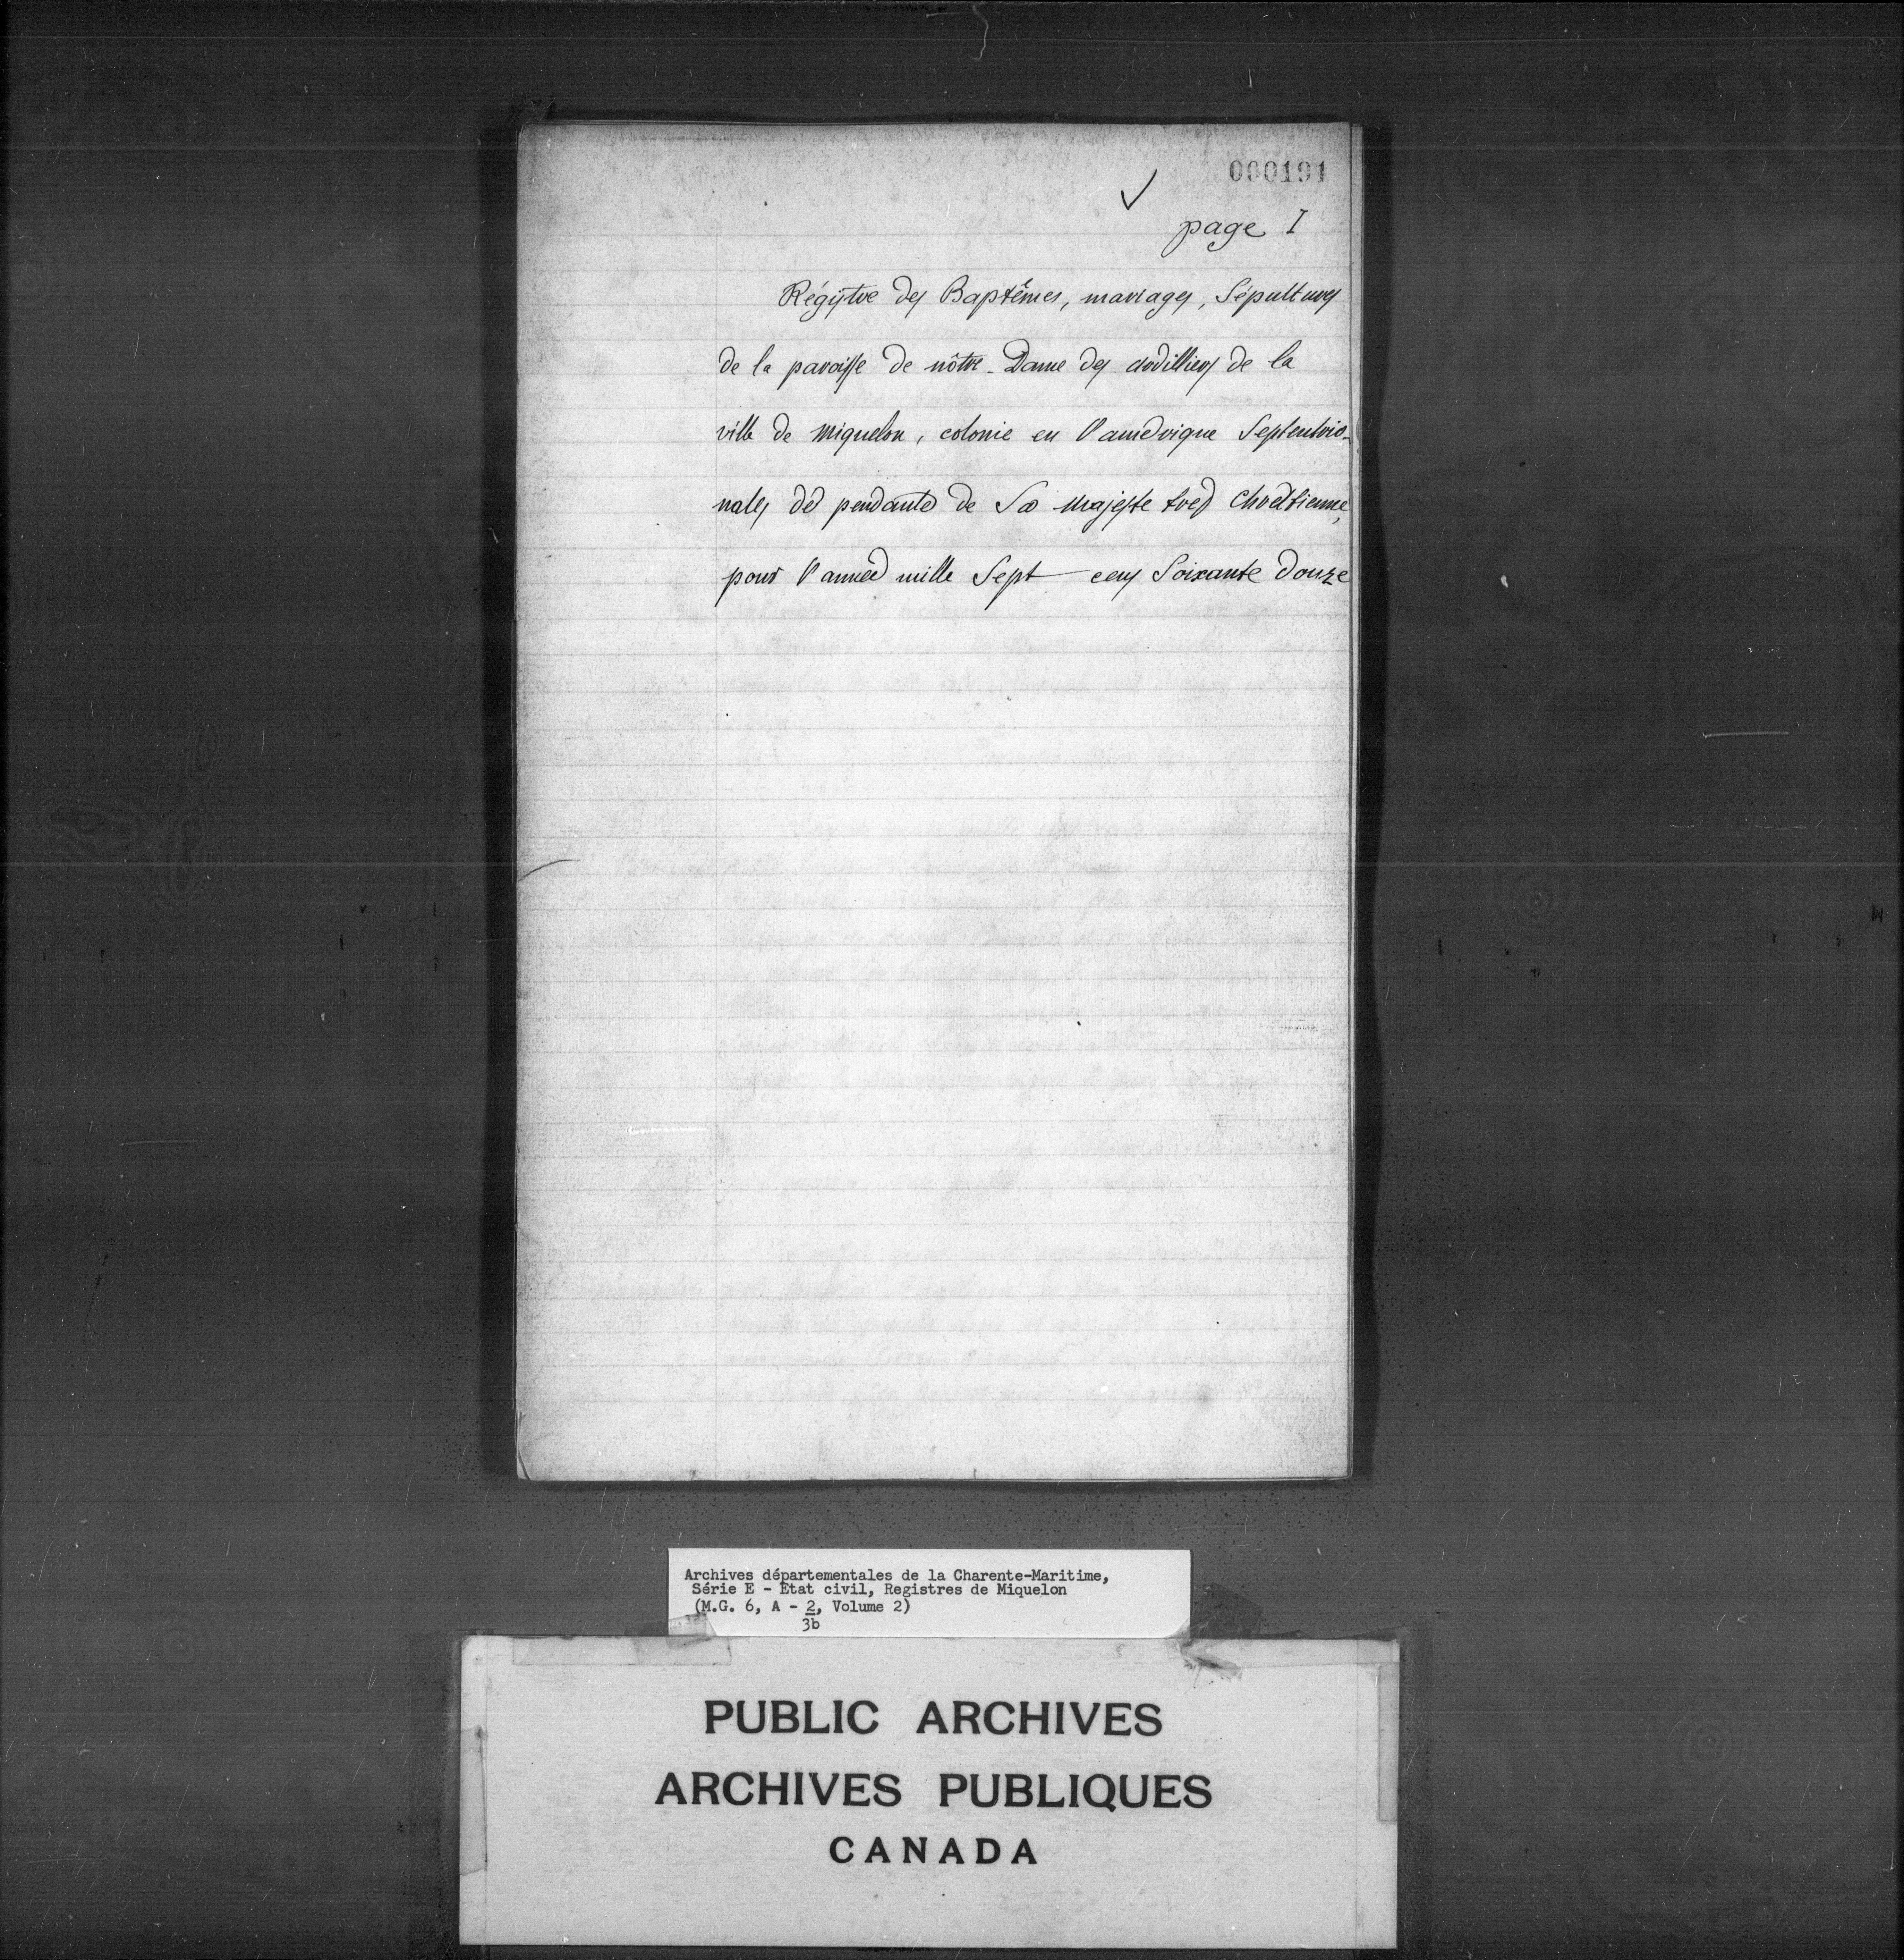 000191
page I
Régistre des Baptêmes, mariages, Sépultures
de la paroisse de nôtre-Dame des ardilliers de la
ville de Miquelon, colonie en l'amérique Septentrio-
nales dé pendante de Sa Majesté tres Chrétienne,
pour l'année mille Sept cens Soixante Douze
Archives départementales de la Charente-Maritime,
Série E - État civil, Registres de Miquelon
(M.G. 6, A - 2, Volume 2)
3b
PUBLIC ARCHIVES
ARCHIVES PUBLIQUES
CANADA